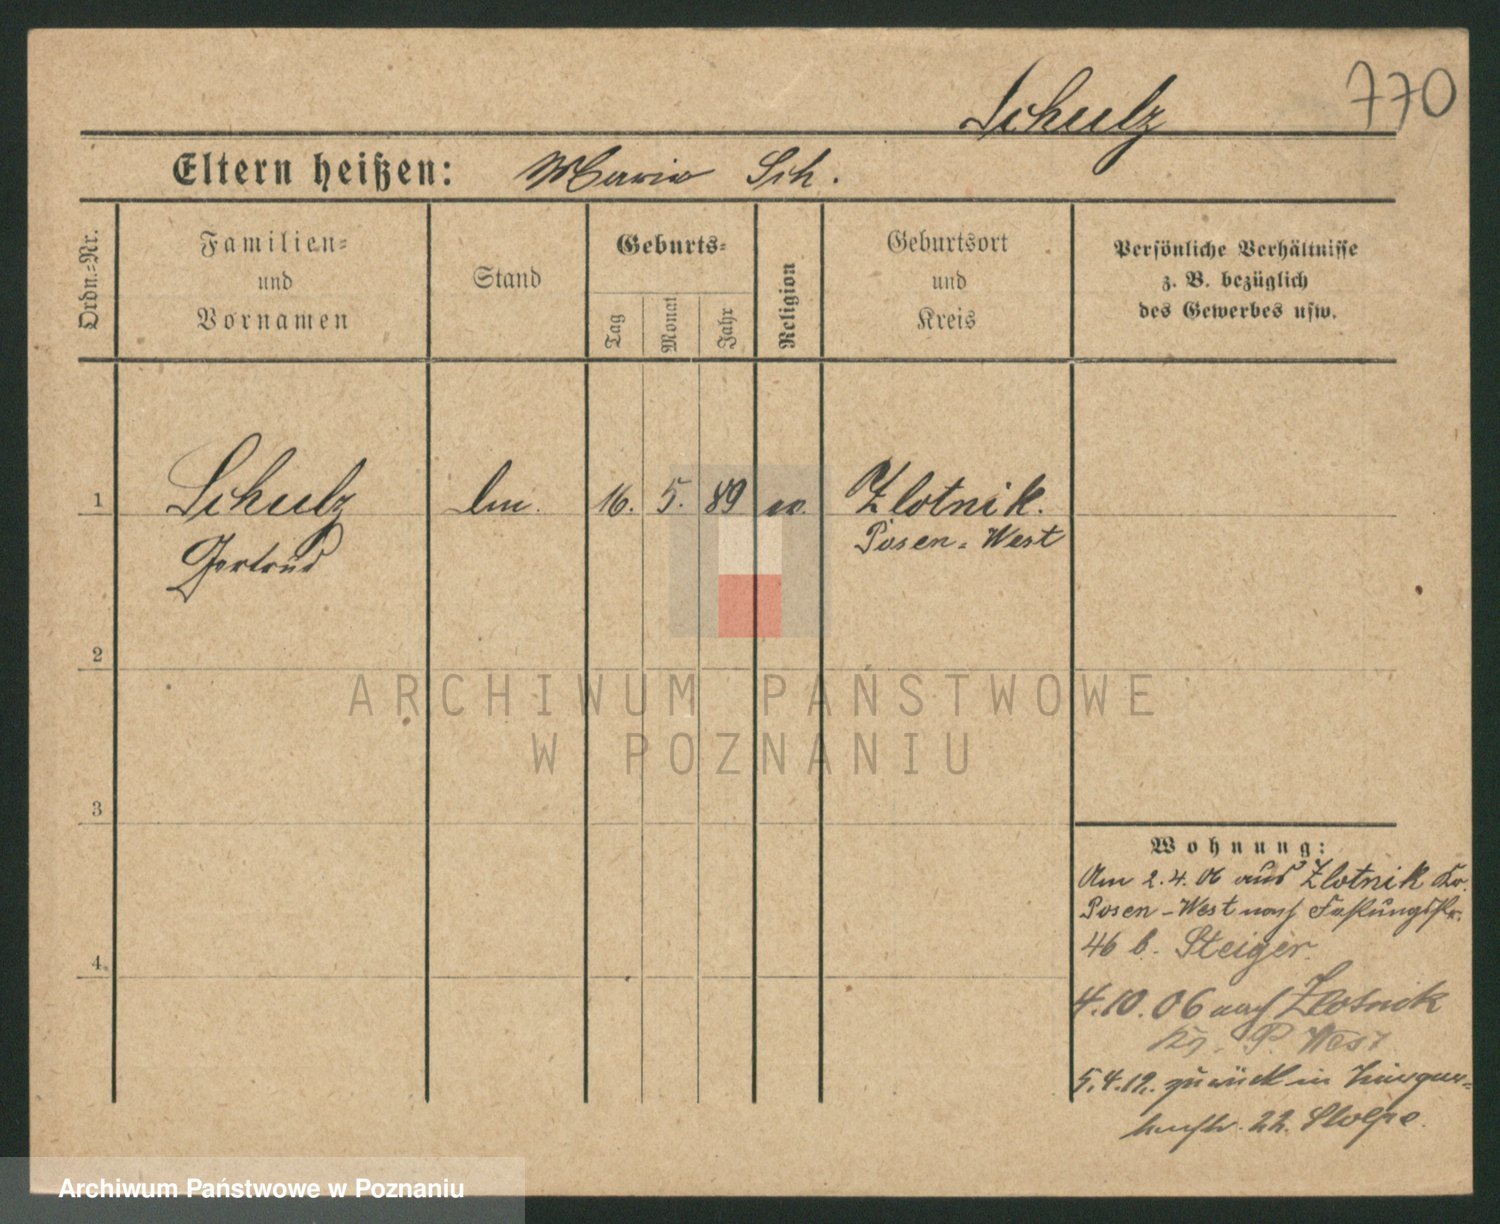 Schulz
770
Eltern heißen: Maria Sch.
Ordn.-Nr.
Familien-
und
Vornamen
Stand
Geburts-
Tag
Monat
Jahr
Religion
Geburtsort
und
Kreis
Persönliche Verhältnisse
z. B. bezüglich
des Gewerbes usw.
1
Schulz
Gertrud
16. 5. 89
Zlotnik.
Posen-West
2
ARCHIWUM PAŃSTWOWE
W POZNANIU
3
4
Wohnung:
Am 2.4.06 aus Zlotnik Kr.
Posen-West nach Festungsstr.
46 b. Steiger.
4.10.06 nach Zlotnik
Kr. P. West
5.4.12. zurück in
22. Stolpe.
Archiwum Państwowe w Poznaniu